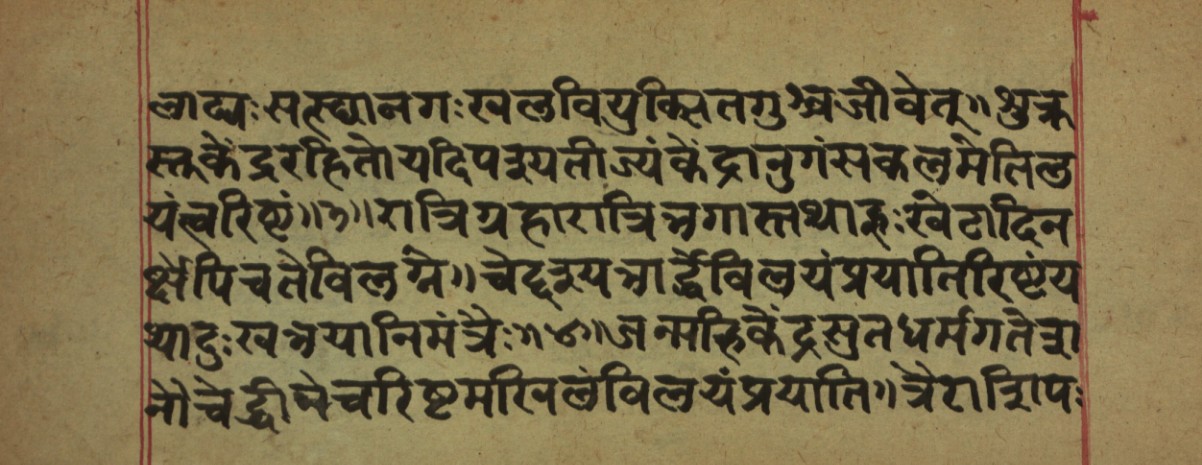 णाद्यः सस्थ्यानगः खलवियुक्सितगुश्च जीवेत् ॥ शुक्र
स्तु केंद्ररहितो यदि पश्यतीज्यं केंद्रानुगं सकलमेति ल
यं त्वरिष्टं ॥ ३ ॥ रात्रिग्रहा रात्रिभगास्तथाहः खेटा दिन
र्क्षेपि च ते विलग्ने ॥ चेद्दृश्यभार्द्धे विलयं प्रयाति रिष्टं य
था दुःखभयानि मंत्रैः ॥ ४ ॥ जन्माह्नि केंद्रसुतधर्मगते
चेद् च रिष्टमखिलं विलयं प्रयाति ॥